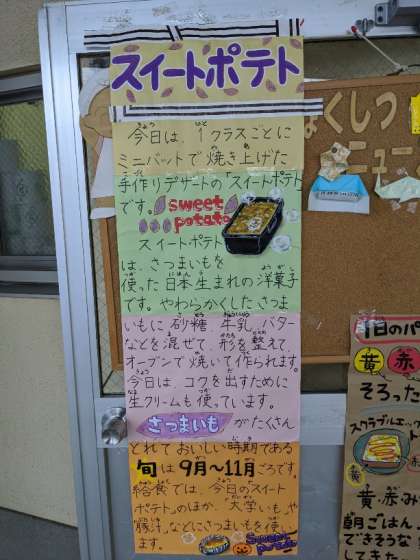 スイートポテト
今日は、1クラスごとに
ミニバットで焼き上げた
手作りデザートの「スイートポテト」
です。
sweet
potato
スイートポテト
は、さつまいもを
使った日本生まれの洋菓子
です。やわらかくしたさつま
いもに砂糖、牛乳、バター
などを混ぜて、形を整えて、
オーブンで焼いて作られます。
今日は、コクを出すために
生クリームも使っています。
さつまいもがたくさん
とれておいしい時期である
旬は9月〜11月ごろです。
給食では、今日のスイート
ポテトのほか、大学いもや
豚汁などにさつまいもを使い
ます。
Sweet
potato
くしつ
ニュー
1日のパ
黄 赤
そろった
スクランブルエッグ
黄・赤・み
朝ごはん
できそうな